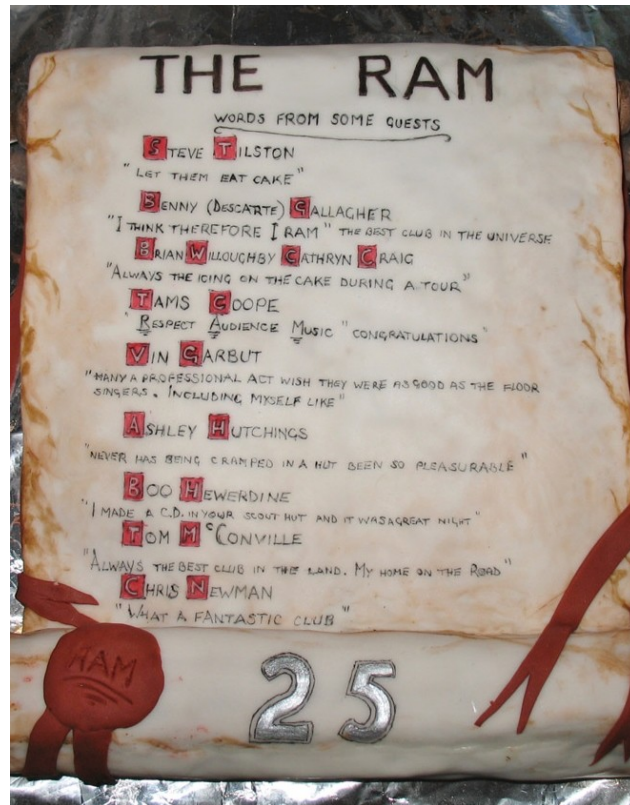 THE RAM
WORDS FROM SOME GUESTS
STEVE TILSTON
"LET THEM EAT CAKE"
BENNY (DESCARTE) GALLAGHER
"I THINK THEREFORE I RAM" THE BEST CLUB IN THE UNIVERSE
BRIAN WILLOUGHBY CATHRYN CRAIG
"ALWAYS THE ICING ON THE CAKE DURING A TOUR"
TAMS COOPE
"RESPECT AUDIENCE MUSIC" CONGRATULATIONS"
VIN GARBUT
"MANY A PROFESSIONAL ACT WISH THEY WERE AS GOOD AS THE FLOOR
SINGERS. INCLUDING MYSELF LIKE"
ASHLEY HUTCHINGS
"NEVER HAS BEING CRAMPED IN A HUT BEEN SO PLEASURABLE"
BOO HEWERDINE
"I MADE A C.D. IN YOUR SCOUT HUT AND IT WAS A GREAT NIGHT"
TOM McCONVILLE
"ALWAYS THE BEST CLUB IN THE LAND. MY HOME ON THE ROAD"
CHRIS NEWMAN
"WHAT A FANTASTIC CLUB"
RAM
25